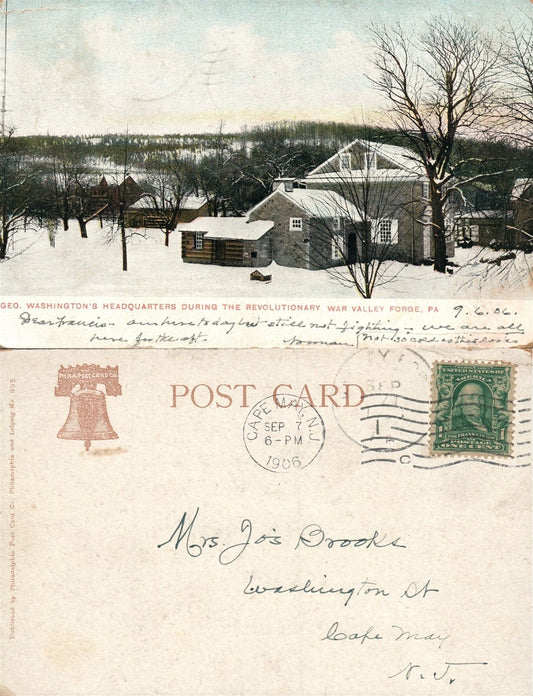 GEO. WASHINGTON'S HEADQUARTERS DURING THE REVOLUTIONARY WAR VALLEY FORGE, PA
9.6.06.
Dear Francis- am here today but still not fighting - we are all
here for the
Norman (not so cold as this looks
PHILA. POST CARD CO.
POST CARD
CAPE MAY, N.J.
SEP 7
6-PM
1906
SEP
1
UNITED STATES OF AMERICA
FRANKLIN
POSTAGE
ONE CENT
Published by Philadelphia Post Card Co., Philadelphia and Leipzig No. 955
Mrs. Jos Brooks
Washington St
Cape May
N.J.